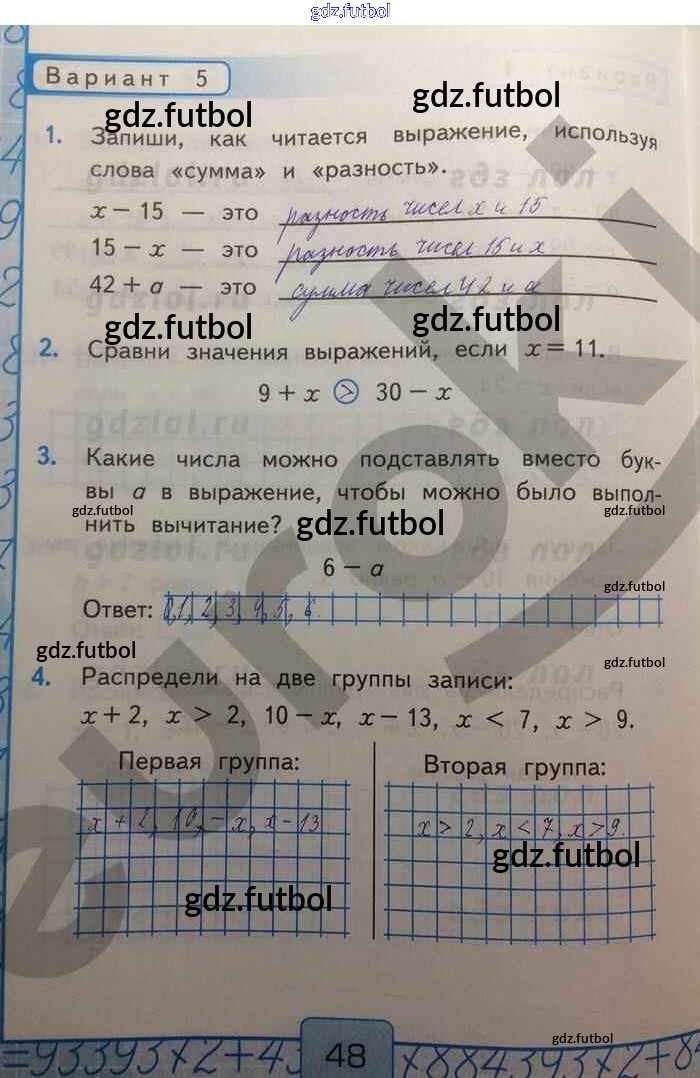 gdz.futbol
Вариант 5
gdz.futbol
gdz.futbol
1. Запиши, как читается выражение, используя
слова «сумма» и «разность».
x − 15 — это разность чисел x и 15
15 − x — это разность чисел 15 и x
42 + a — это сумма чисел 42 и a
gdz.futbol
gdz.futbol
2. Сравни значения выражений, если x = 11.
9 + x > 30 − x
3. Какие числа можно подставлять вместо бук-
вы a в выражение, чтобы можно было выпол-
gdz.futbol
gdz.futbol
нить вычитание?
gdz.futbol
6 − a
gdz.futbol
Ответ: 0,1,2,3,4,5,6.
gdz.futbol
gdz.futbol
4. Распредели на две группы записи:
x + 2, x > 2, 10 − x, x − 13, x < 7, x > 9.
Первая группа:
Вторая группа:
x + 2, 10, − x, x − 13
x > 2, x < 7, x > 9.
gdz.futbol
gdz.futbol
euroki
gdz.futbol
=93393x2+43
48
x884393x2+84